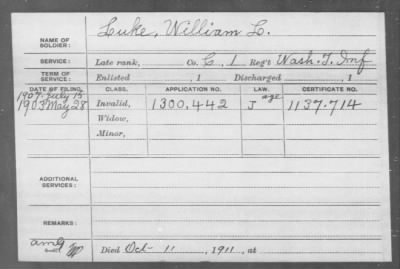 NAME OF SOLDIER: Luke, William L.
SERVICE: Late rank, Co. G, 1 Reg't Wash. T. Inf
TERM OF SERVICE: Enlisted , 1 Discharged , 1
DATE OF FILING. CLASS. APPLICATION NO. LAW. CERTIFICATE NO.
1907 July 15 age
1903 May 28 Invalid, 1300,442 J 1137.714
Widow,
Minor,
ADDITIONAL SERVICES:
REMARKS:
Died Oct- 11, 1911, at